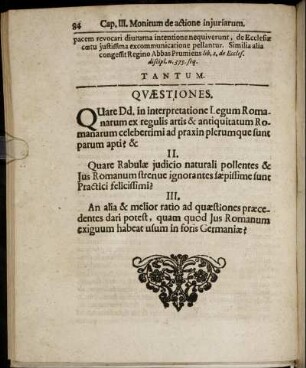 84 Cap. III. Monitum de actione injuriarum.
pacem revocari diuturna intentione nequiverunt, de Ecclesiæ
cœtu justissima excommunicatione pellantur. Similia alia
congessit Regino Abbas Prumiens lib. 2, de Eccles.
discipl. n. 375. seq.
TANTUM.
QVÆSTIONES.
QUare Dd. in interpretatione Legum Roma-
narum ex regulis artis & antiquitatum Ro-
manarum celeberrimi ad praxin plerumque sunt
parum apti? &
II.
Quare Rabulæ judicio naturali pollentes &
Jus Romanum strenue ignorantes sæpissime sunt
Practici felicissimi?
III.
An alia & melior ratio ad quæstiones præce-
dentes dari potest, quam quod Jus Romanum
exiguum habeat usum in foris Germaniæ?